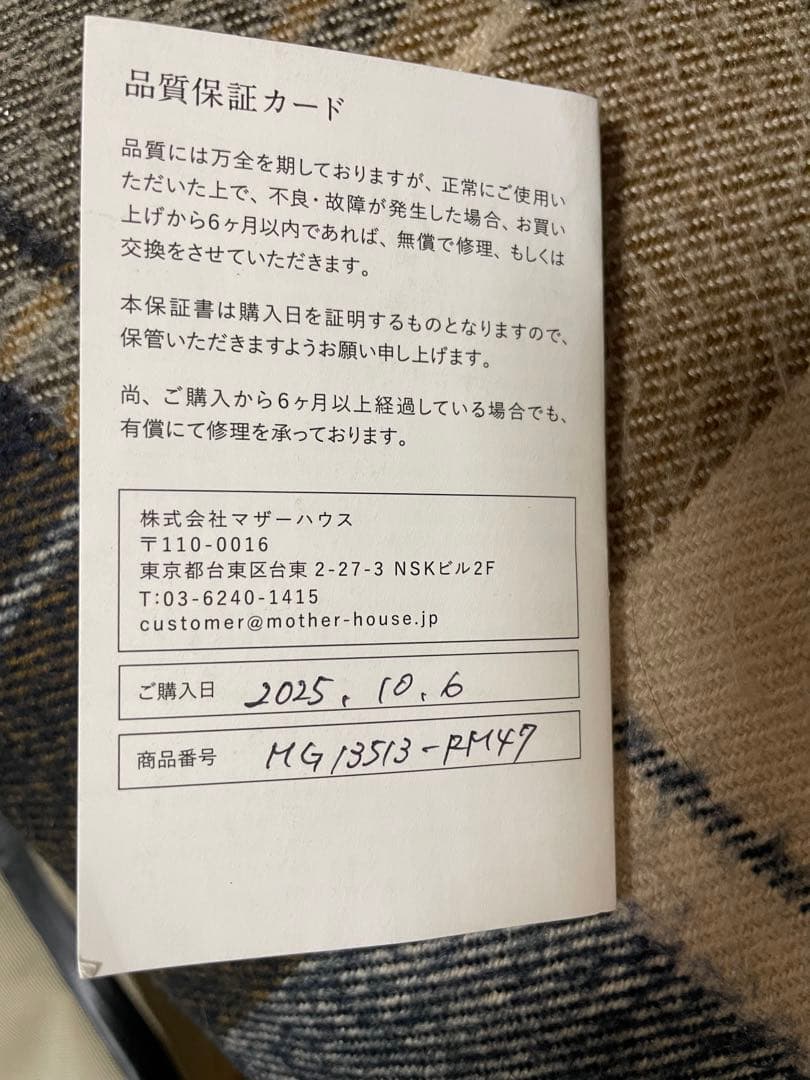 品質保証カード
品質には万全を期しておりますが、正常にご使用い
ただいた上で、不良・故障が発生した場合、お買い
上げから6ヶ月以内であれば、無償で修理、もしくは
交換をさせていただきます。
本保証書は購入日を証明するものとなりますので、
保管いただきますようお願い申し上げます。
尚、ご購入から6ヶ月以上経過している場合でも、
有償にて修理を承っております。
株式会社マザーハウス
〒110-0016
東京都台東区台東 2-27-3 NSKビル2F
T:03-6240-1415
customer@mother-house.jp
ご購入日 2025. 10. 6
商品番号 MG13513-RM47